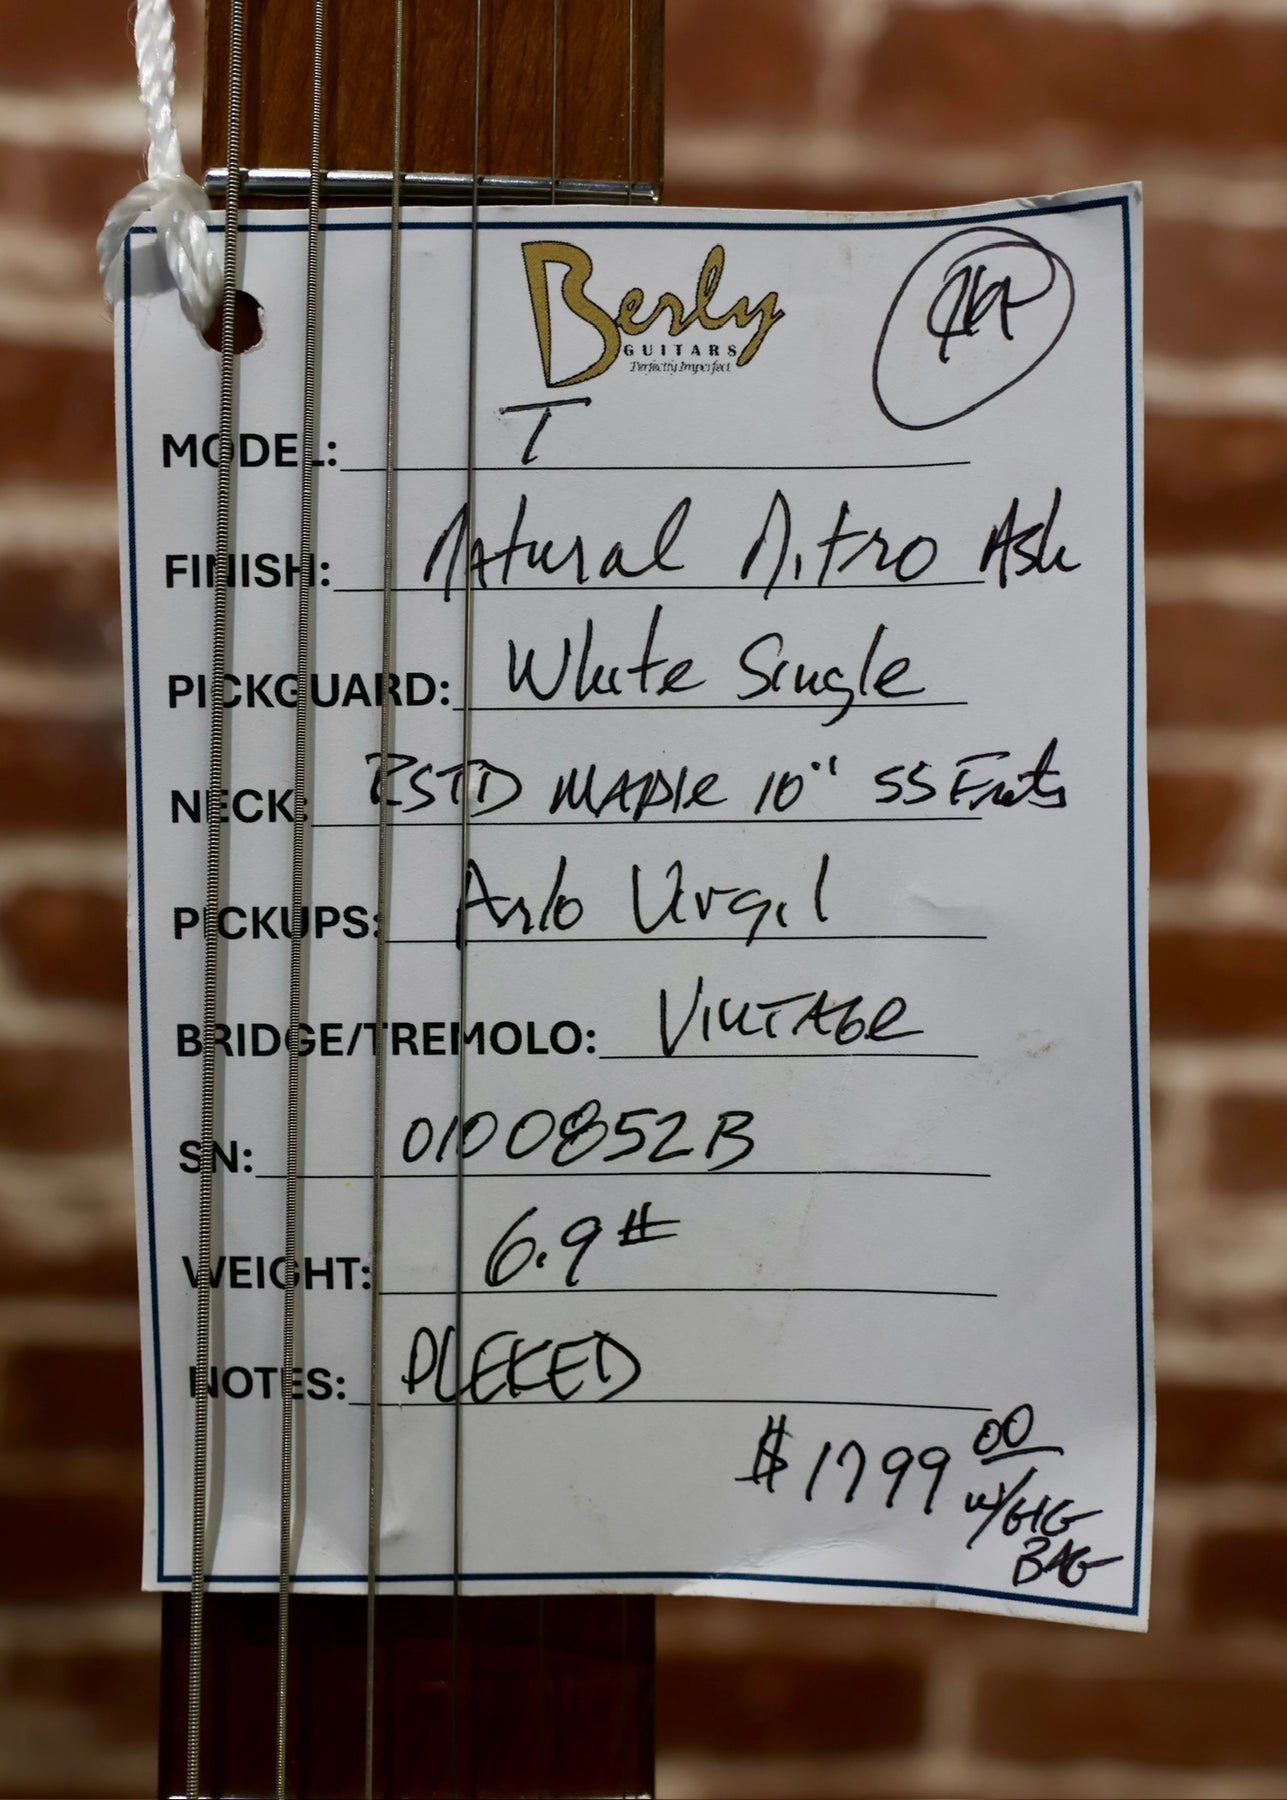 Berly
GUITARS
Perfectly Imperfect
MODEL: T
FINISH: Natural Nitro Ash
PICKGUARD: White Single
NECK: RSTD MAPle 10" SS Frets
PICKUPS: Arlo Virgil
BRIDGE/TREMOLO: VINTAGe
SN: 0100852B
WEIGHT: 6.9#
NOTES: PLEKED
$1799 00
w/GIG
BAG